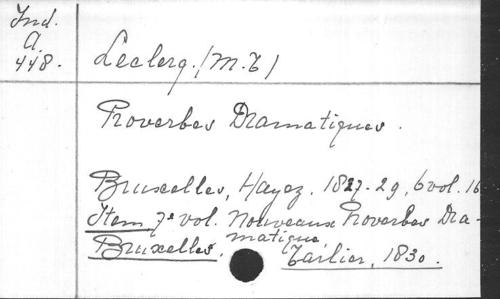 Ind.
A.
448.
Leclerq. (M. T)
Proverbes Dramatiques.
Bruxelles, Hayez. 1827-29, 6 vol. 16
Item 7e vol. Nouveaux Proverbes Dra-
matique,
Bruxelles, Tarlier, 1830.